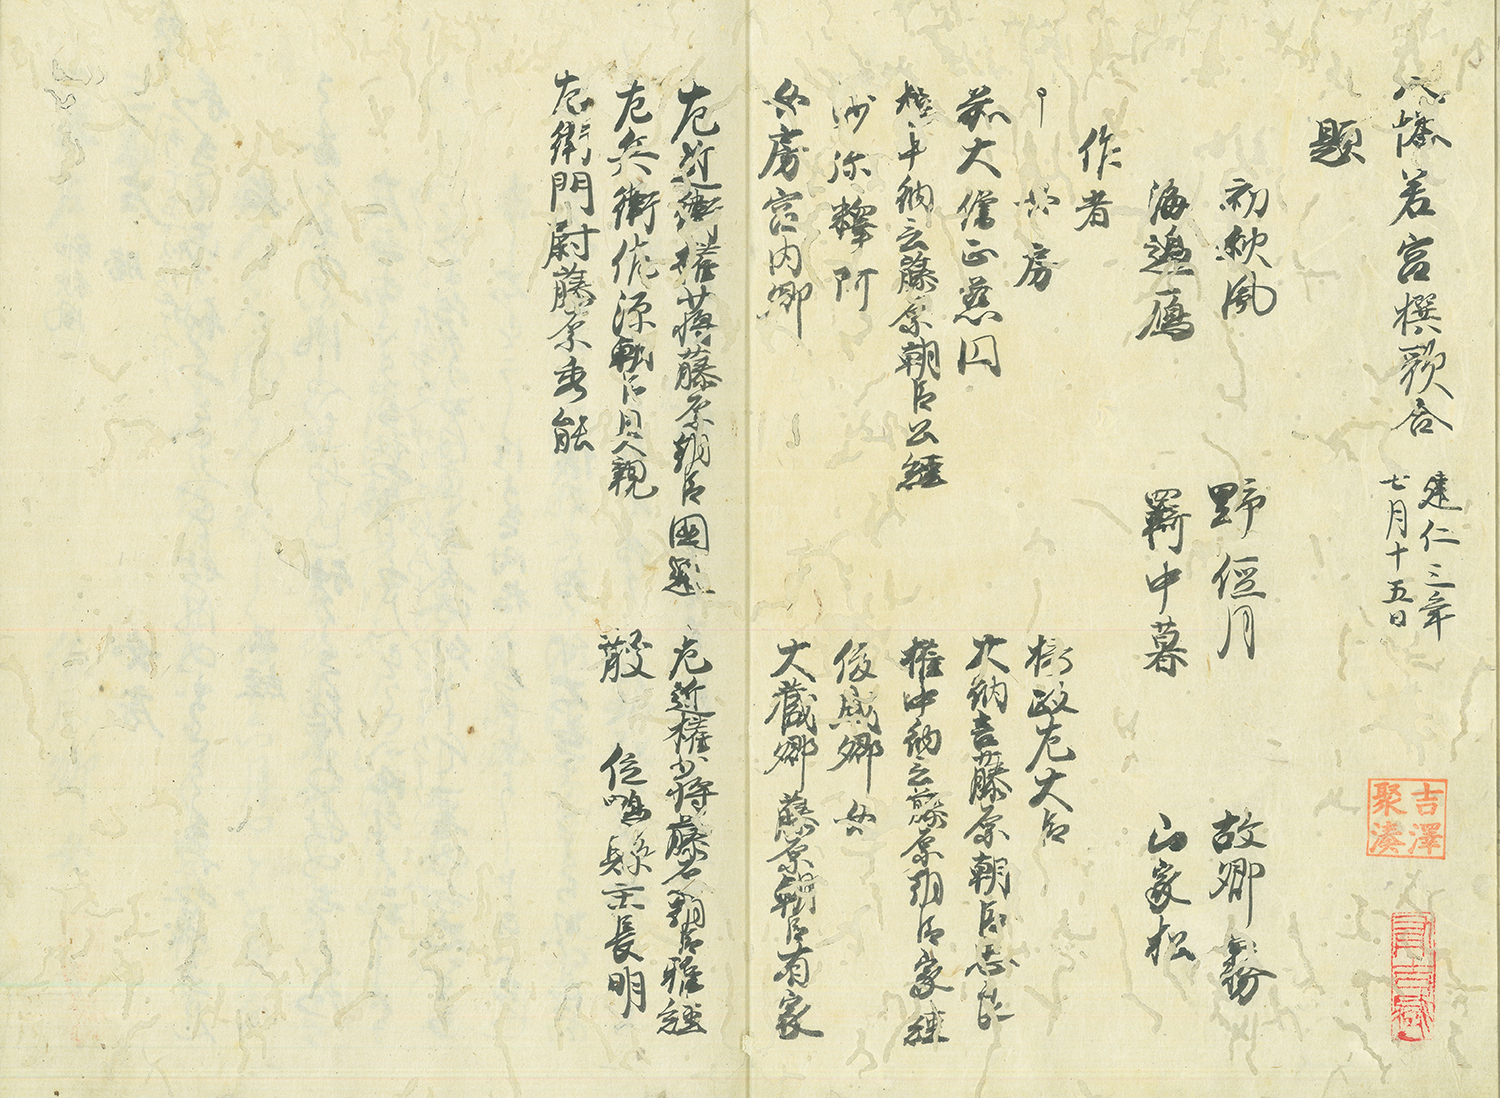 八幡若宮撰歌合 建仁三年
七月十五日
題
初秋風 野径月 故郷霧
海邊鴈 羇中暮 山家松
作者
女房 摂政左大臣
前大僧正慈円 大納言藤原朝臣忠良
権中納言藤原朝臣公經 権中納言藤原朝臣家経
沙弥釋阿 俊成卿女
女房宮内卿 大蔵卿藤原朝臣有家
左近衛権 藤原朝臣 左近権少将藤原朝臣雅經
左兵衛佐源朝臣具親 散位鴨縣主長明
左衛門尉藤原秀能
吉澤
聚湊